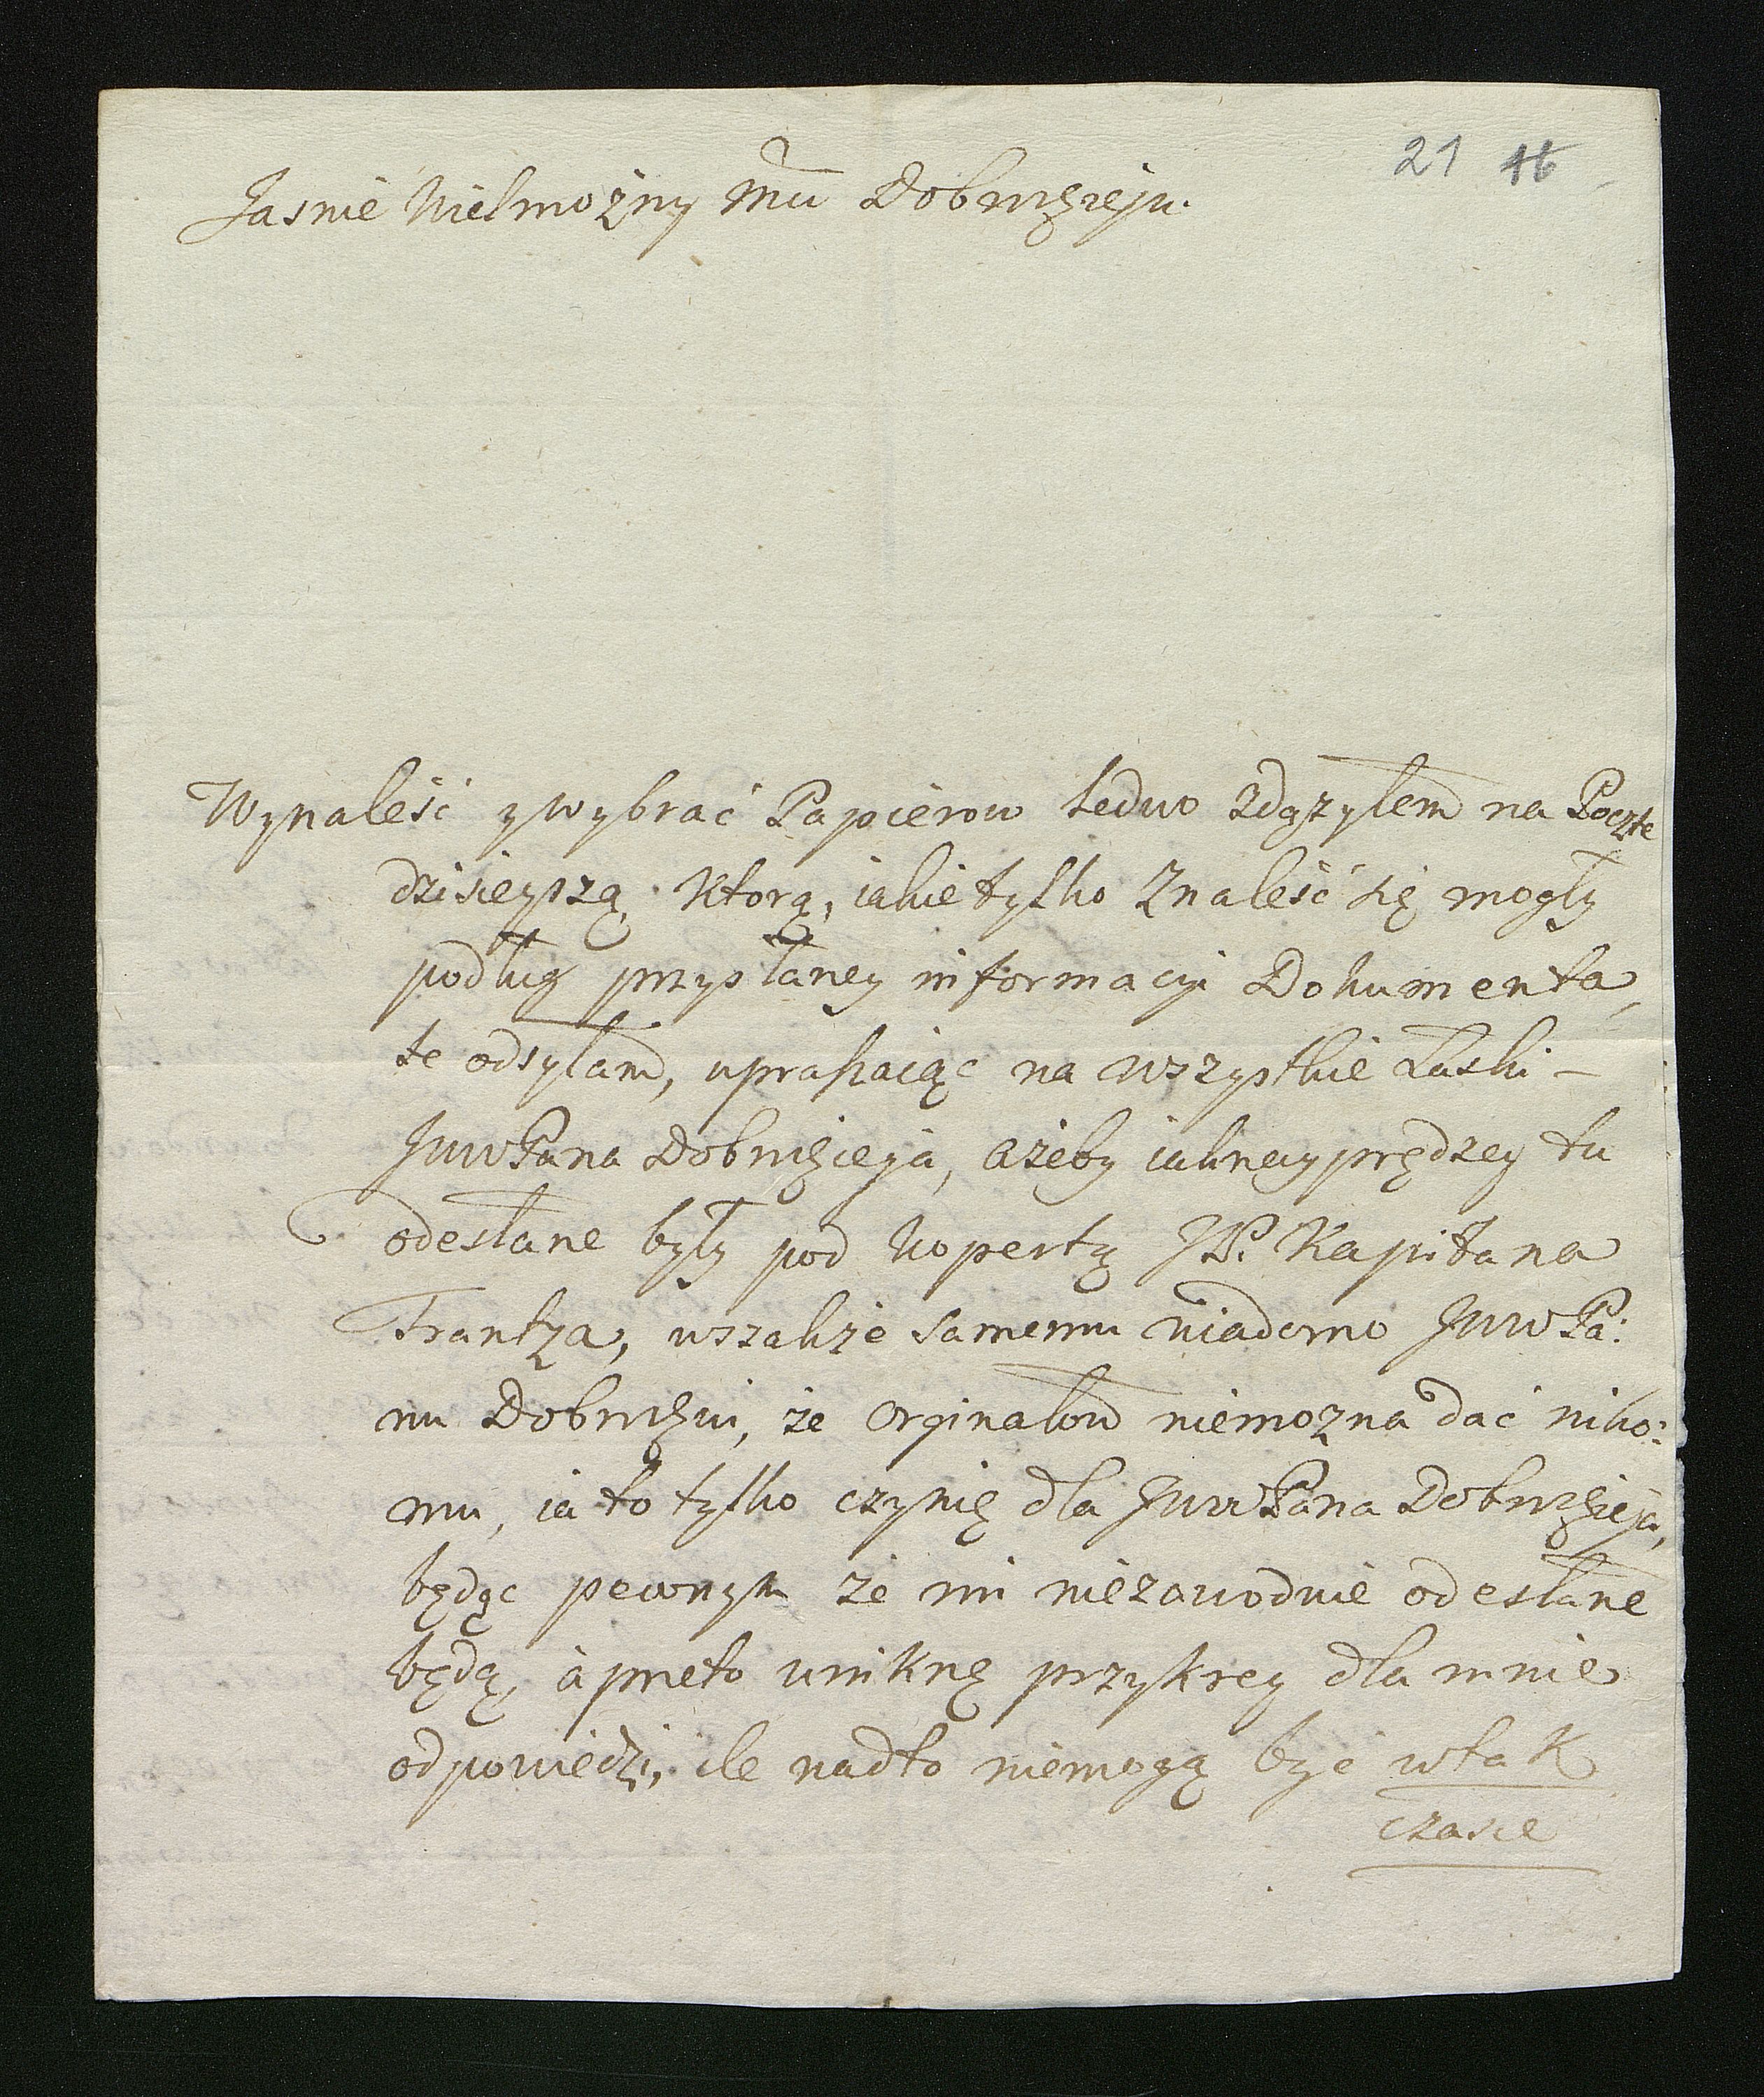 21 16
Jasnie Wielmożny Mći Dobrodzieju.
Wynaleść y wybrać Papierow ledwo zdążylem na Pocztę
dzisieyszą. Ktorą, iakie tylko Znaleść się mogły
podług przysłaney informacyi Dokumenta,
te odsyłam, upraszaiąc na wszystkie Łaski –
JWWPana Dobrodzieja, ażeby iaknayprędzey tu
odesłane były pod kopertą JP. Kapitana
Frantza, wszakże samemu wiadomo JWWPa:
nu Dobrodzwi, że Orginałow niemożna dać niko:
mu, ia to tylko czynię dla JWWPana Dobrodzieja,
będąc pewnym że mi niezawodnie odesłane
będą, à przeto uniknę przykrey dla mnie
odpowiedzi, ile nadto niemogą być w tak
czasie